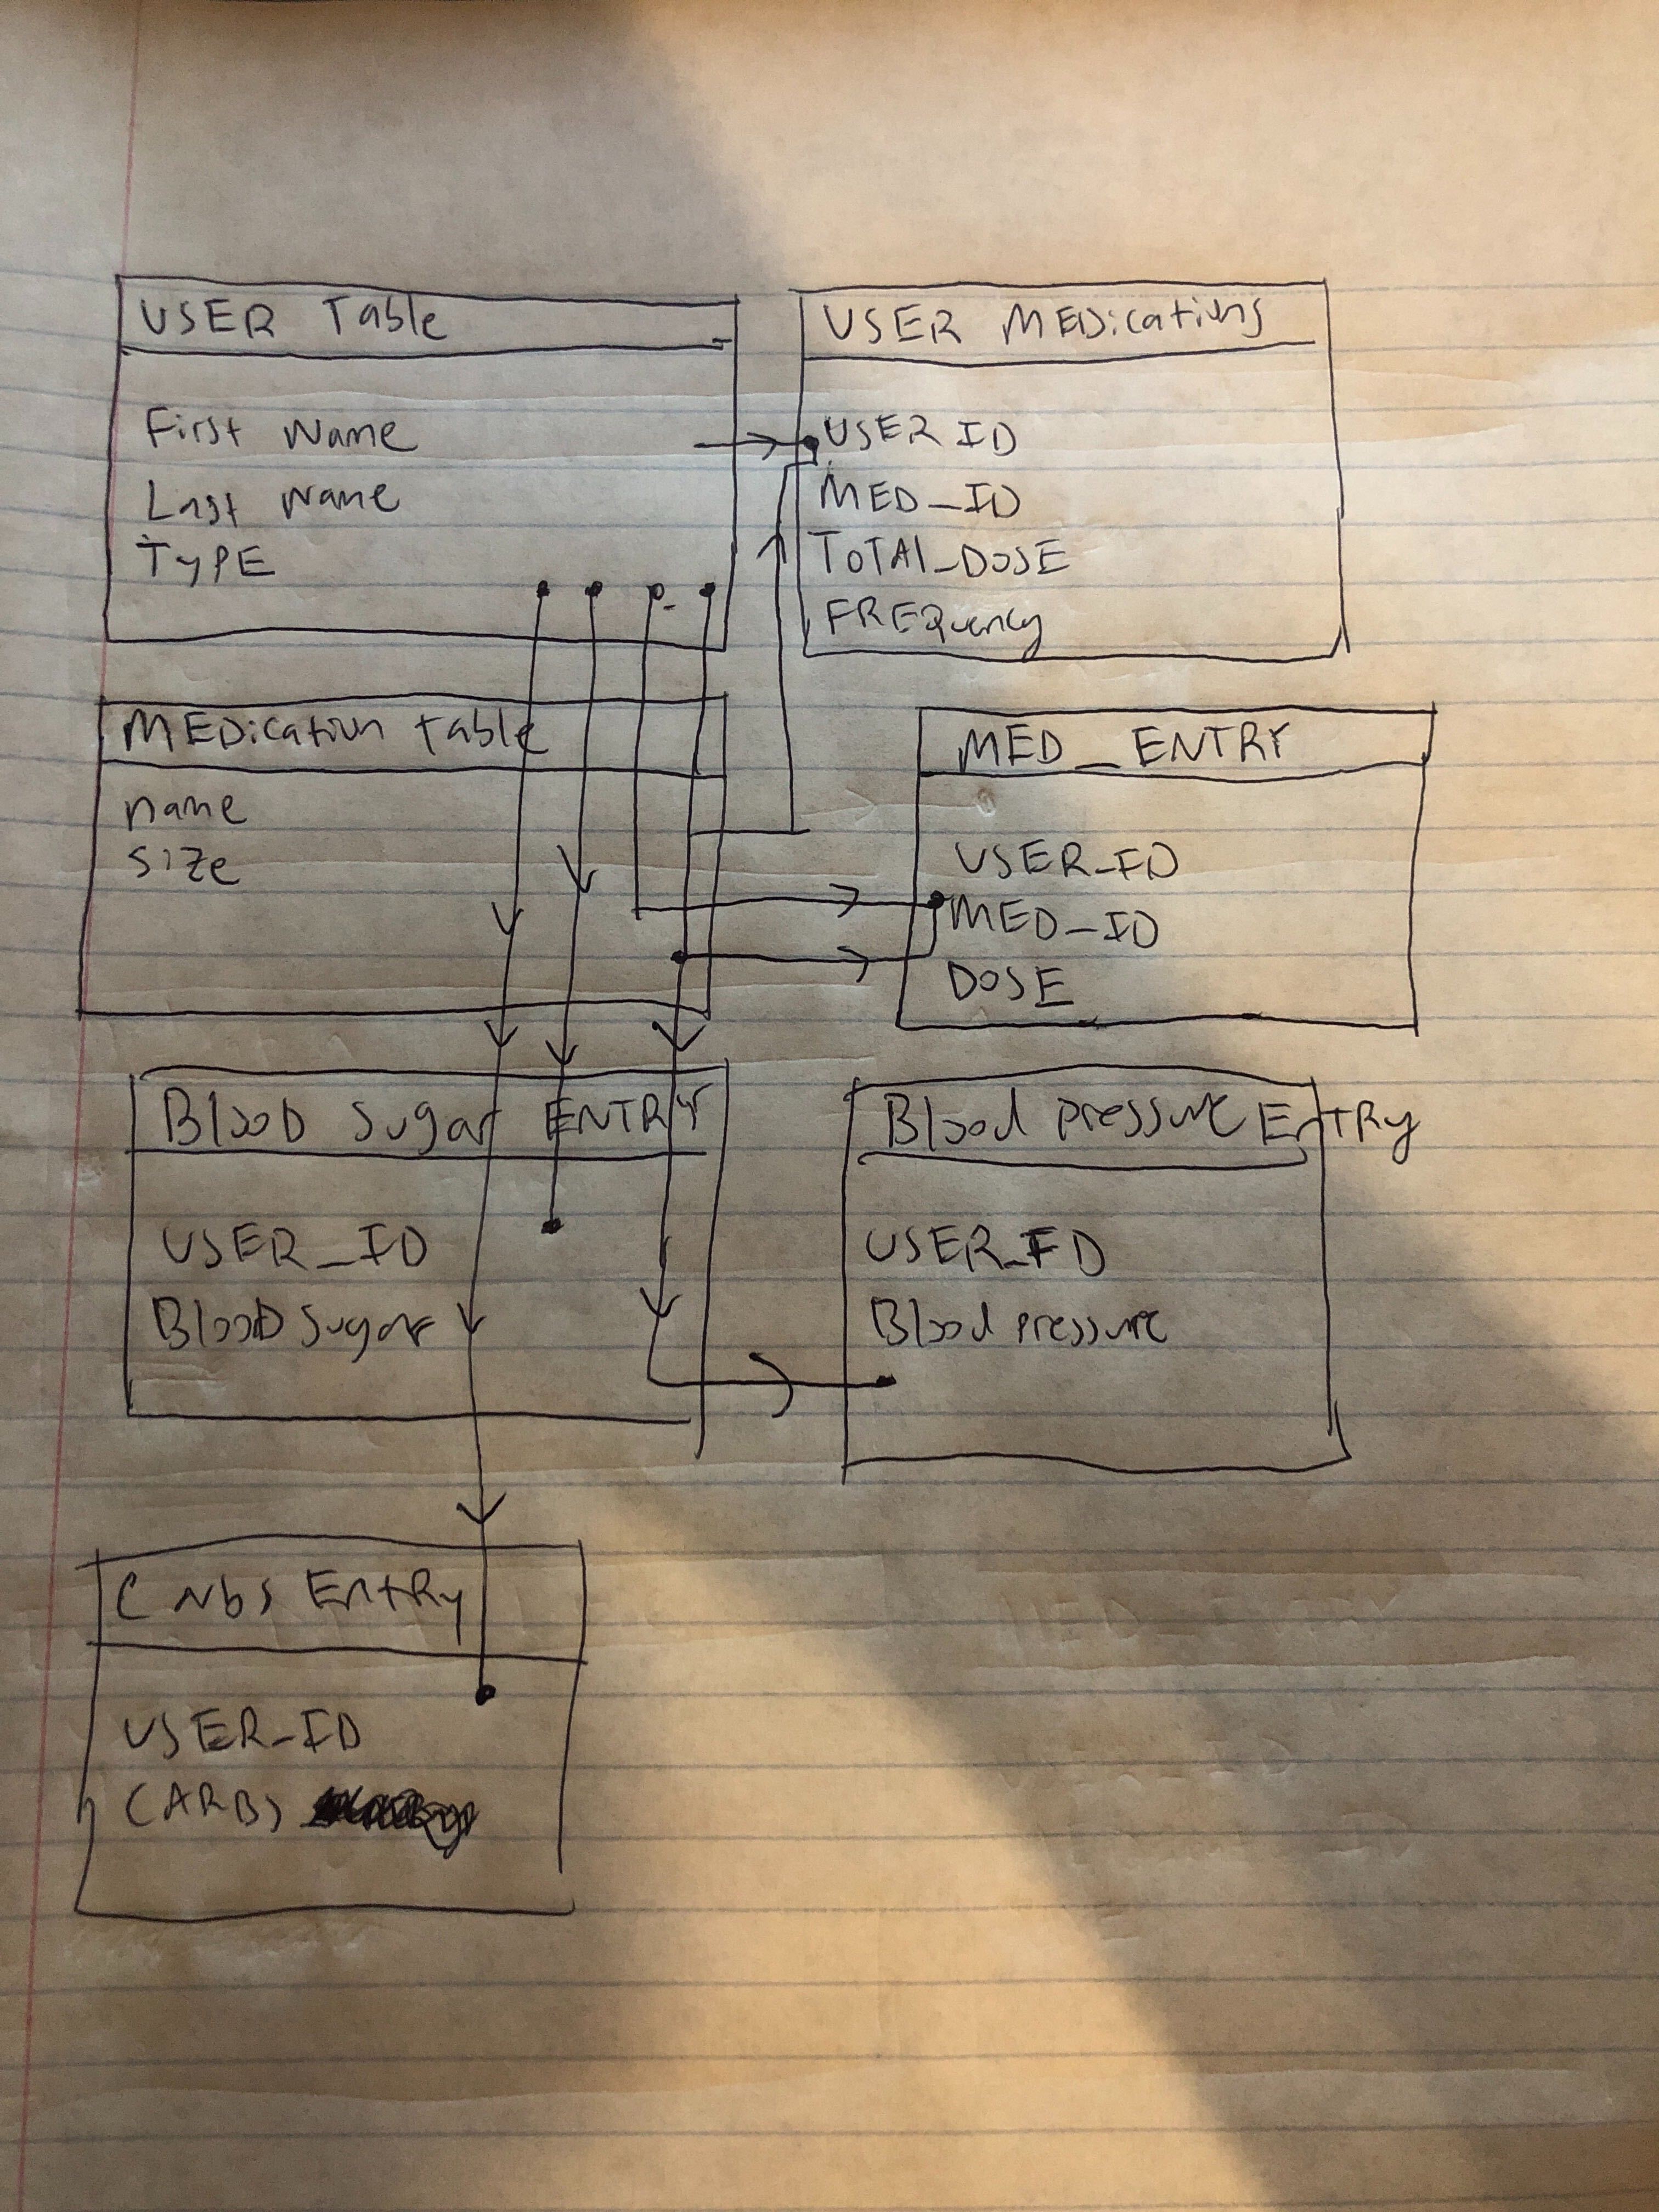 USER Table
First Name
Last Name
TYPE
USER MEDications
USER ID
MED_ID
TOTAL_DOSE
FREQuency
MEDication table
name
size
MED_ENTRY
USER_ID
MED_ID
DOSE
BlooD Sugar ENTRY
USER_ID
BlooD Sugar
Blood pressure EnTRy
USER_ID
Blood pressure
CArbs EntRy
USER_ID
CARBS